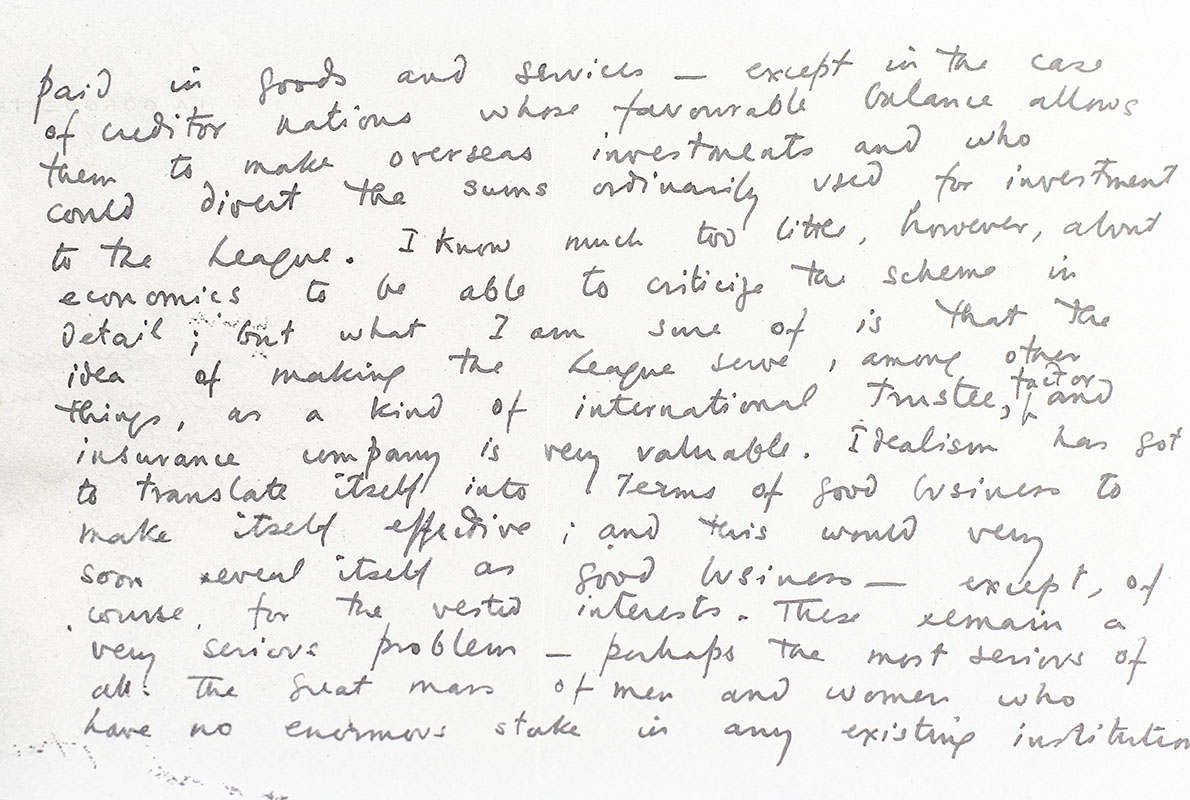 paid in goods and services — except in the case
of creditor nations whose favourable balance allows
them to make overseas investments and who
could divert the sums ordinarily used for investment
to the League. I know much too little, however, about
economics to be able to criticize the scheme in
detail ; but what I am sure of is that the
idea of making the League serve, among other
things, as a kind of international trustee, factor and
insurance company is very valuable. Idealism has got
to translate itself into terms of good business to
make itself effective ; and this would very
soon reveal itself as good business — except, of
course, for the vested interests. These remain a
very serious problem — perhaps the most serious of
all. The great mass of men and women who
have no enormous stake in any existing institution